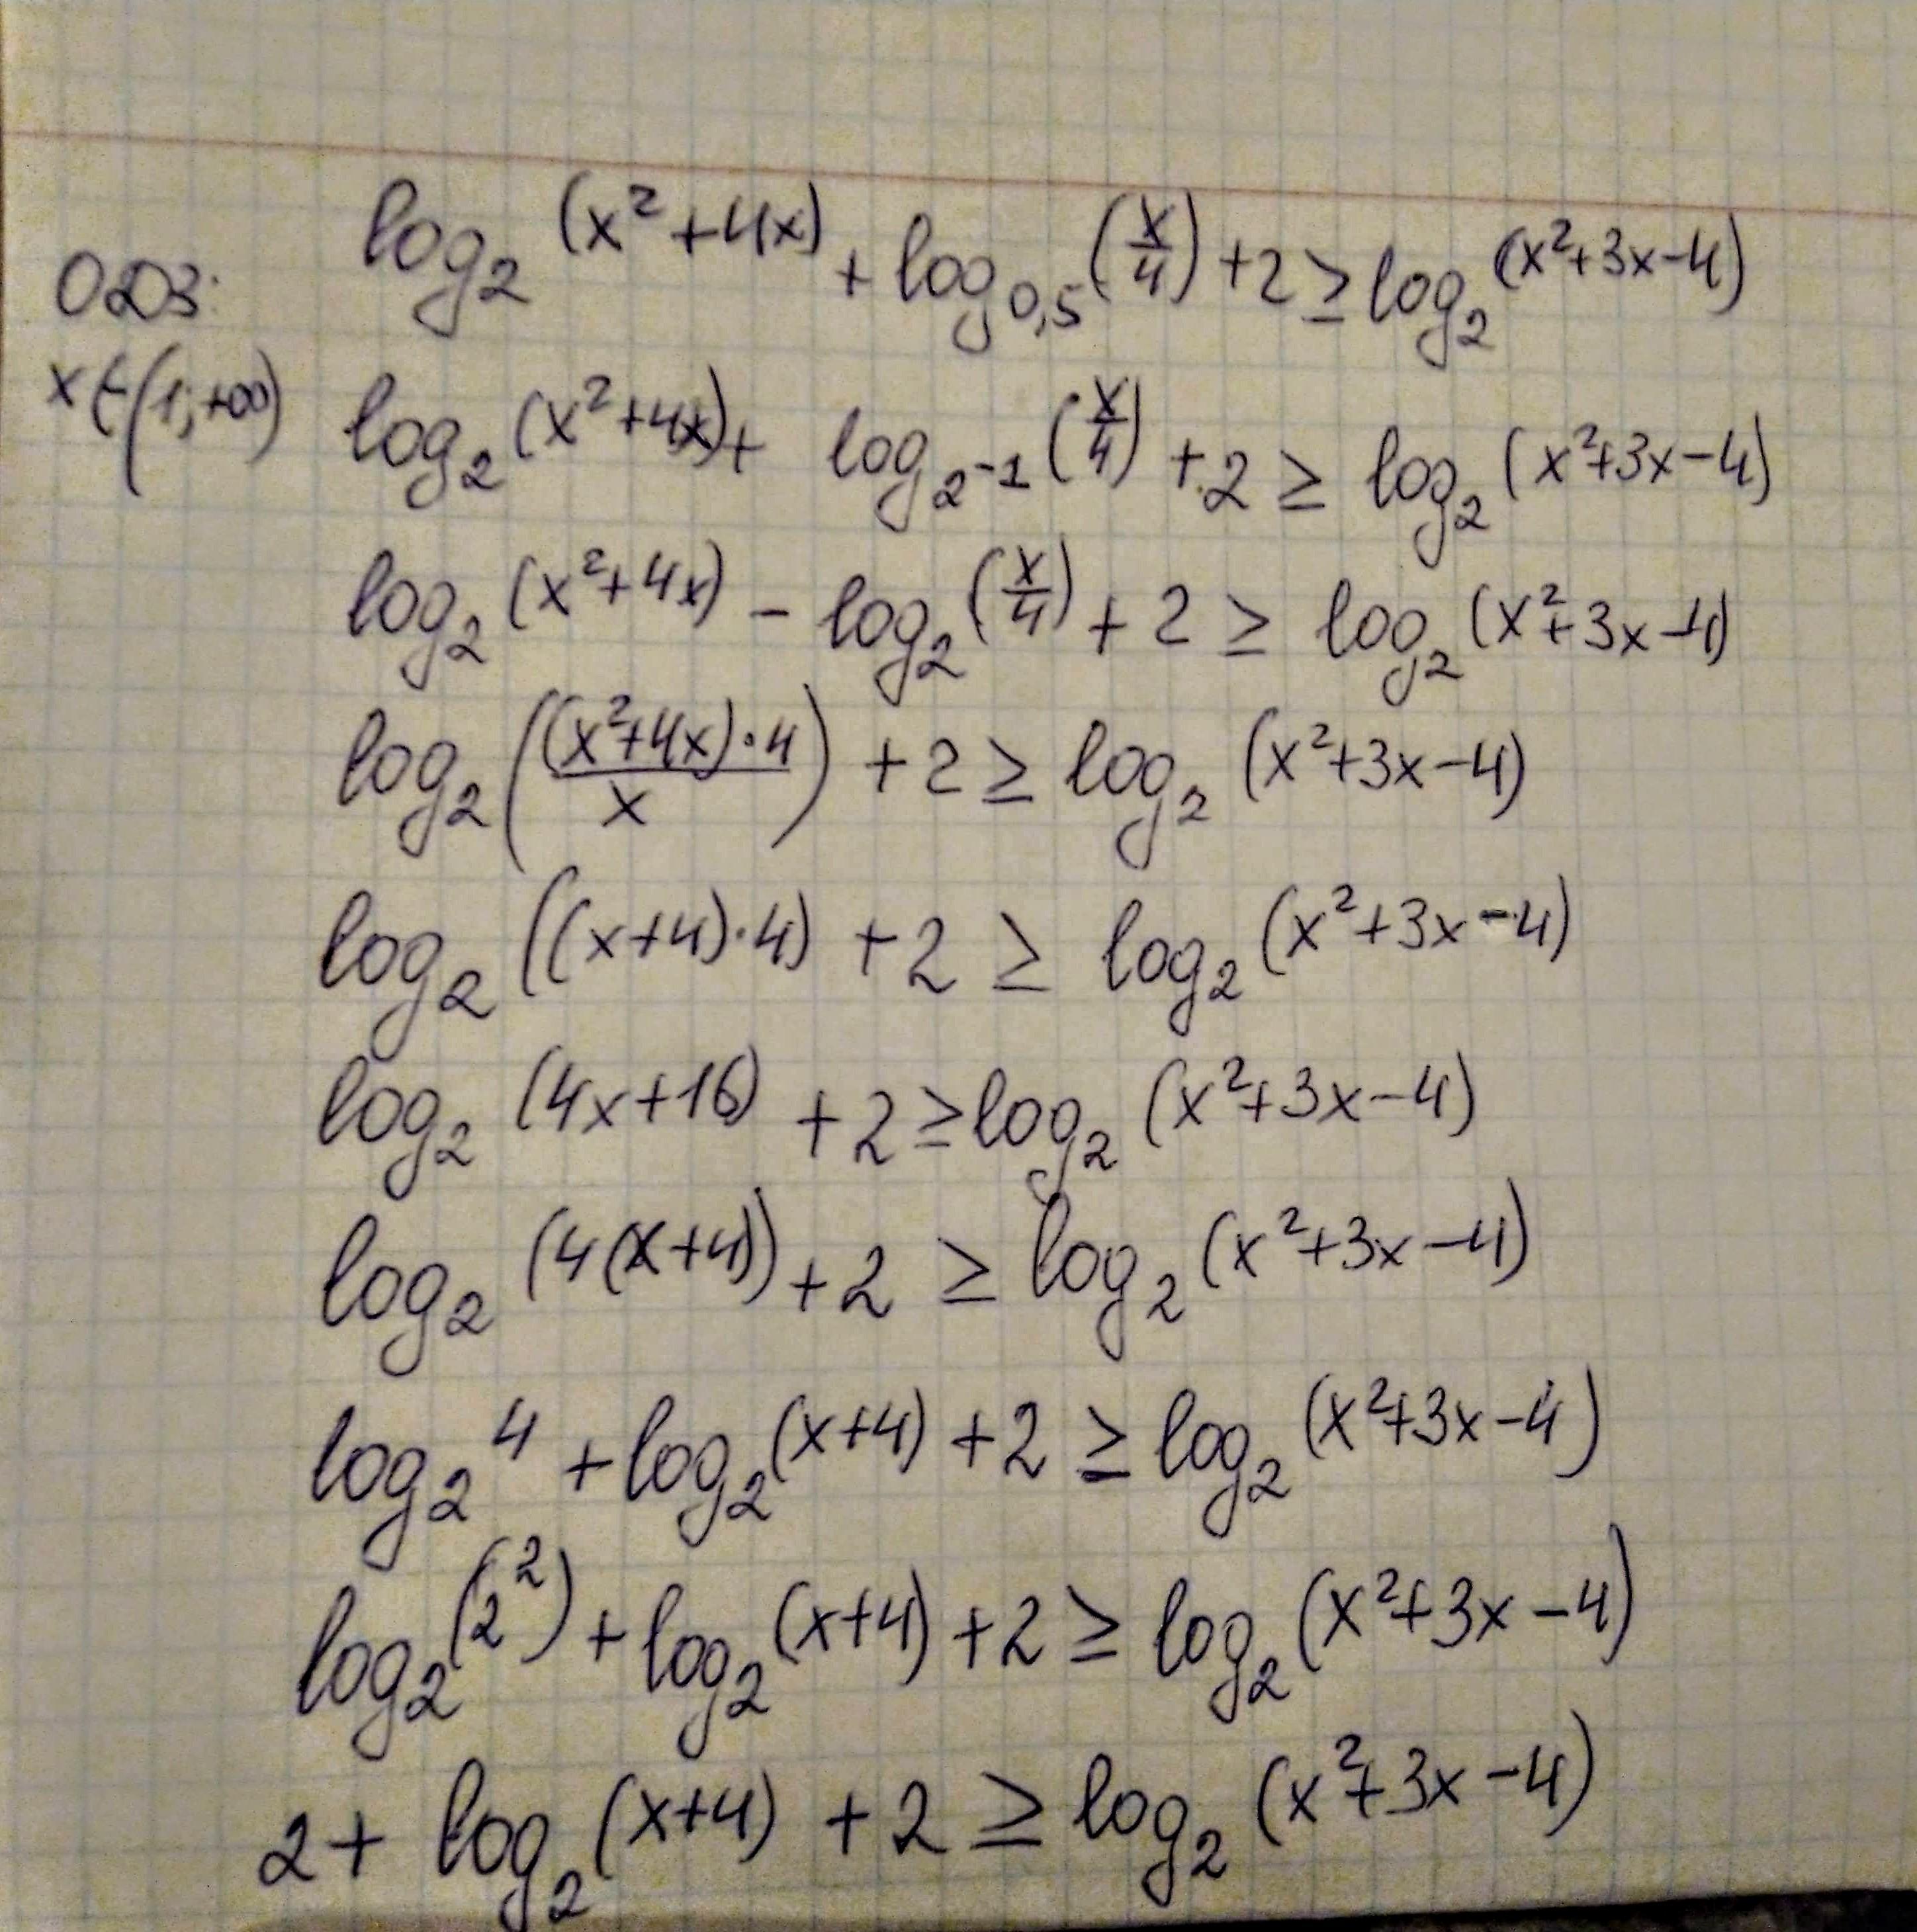 log₂(x²+4x) + log₀,₅(x/4) + 2 ≥ log₂(x²+3x-4)
ОДЗ:
x∈(1;+∞)
log₂(x²+4x) + log₂₋₁(x/4) + 2 ≥ log₂(x²+3x-4)
log₂(x²+4x) - log₂(x/4) + 2 ≥ log₂(x²+3x-4)
log₂((x²+4x)·4/x) + 2 ≥ log₂(x²+3x-4)
log₂((x+4)·4) + 2 ≥ log₂(x²+3x-4)
log₂(4x+16) + 2 ≥ log₂(x²+3x-4)
log₂(4(x+4)) + 2 ≥ log₂(x²+3x-4)
log₂4 + log₂(x+4) + 2 ≥ log₂(x²+3x-4)
log₂(2²) + log₂(x+4) + 2 ≥ log₂(x²+3x-4)
2 + log₂(x+4) + 2 ≥ log₂(x²+3x-4)